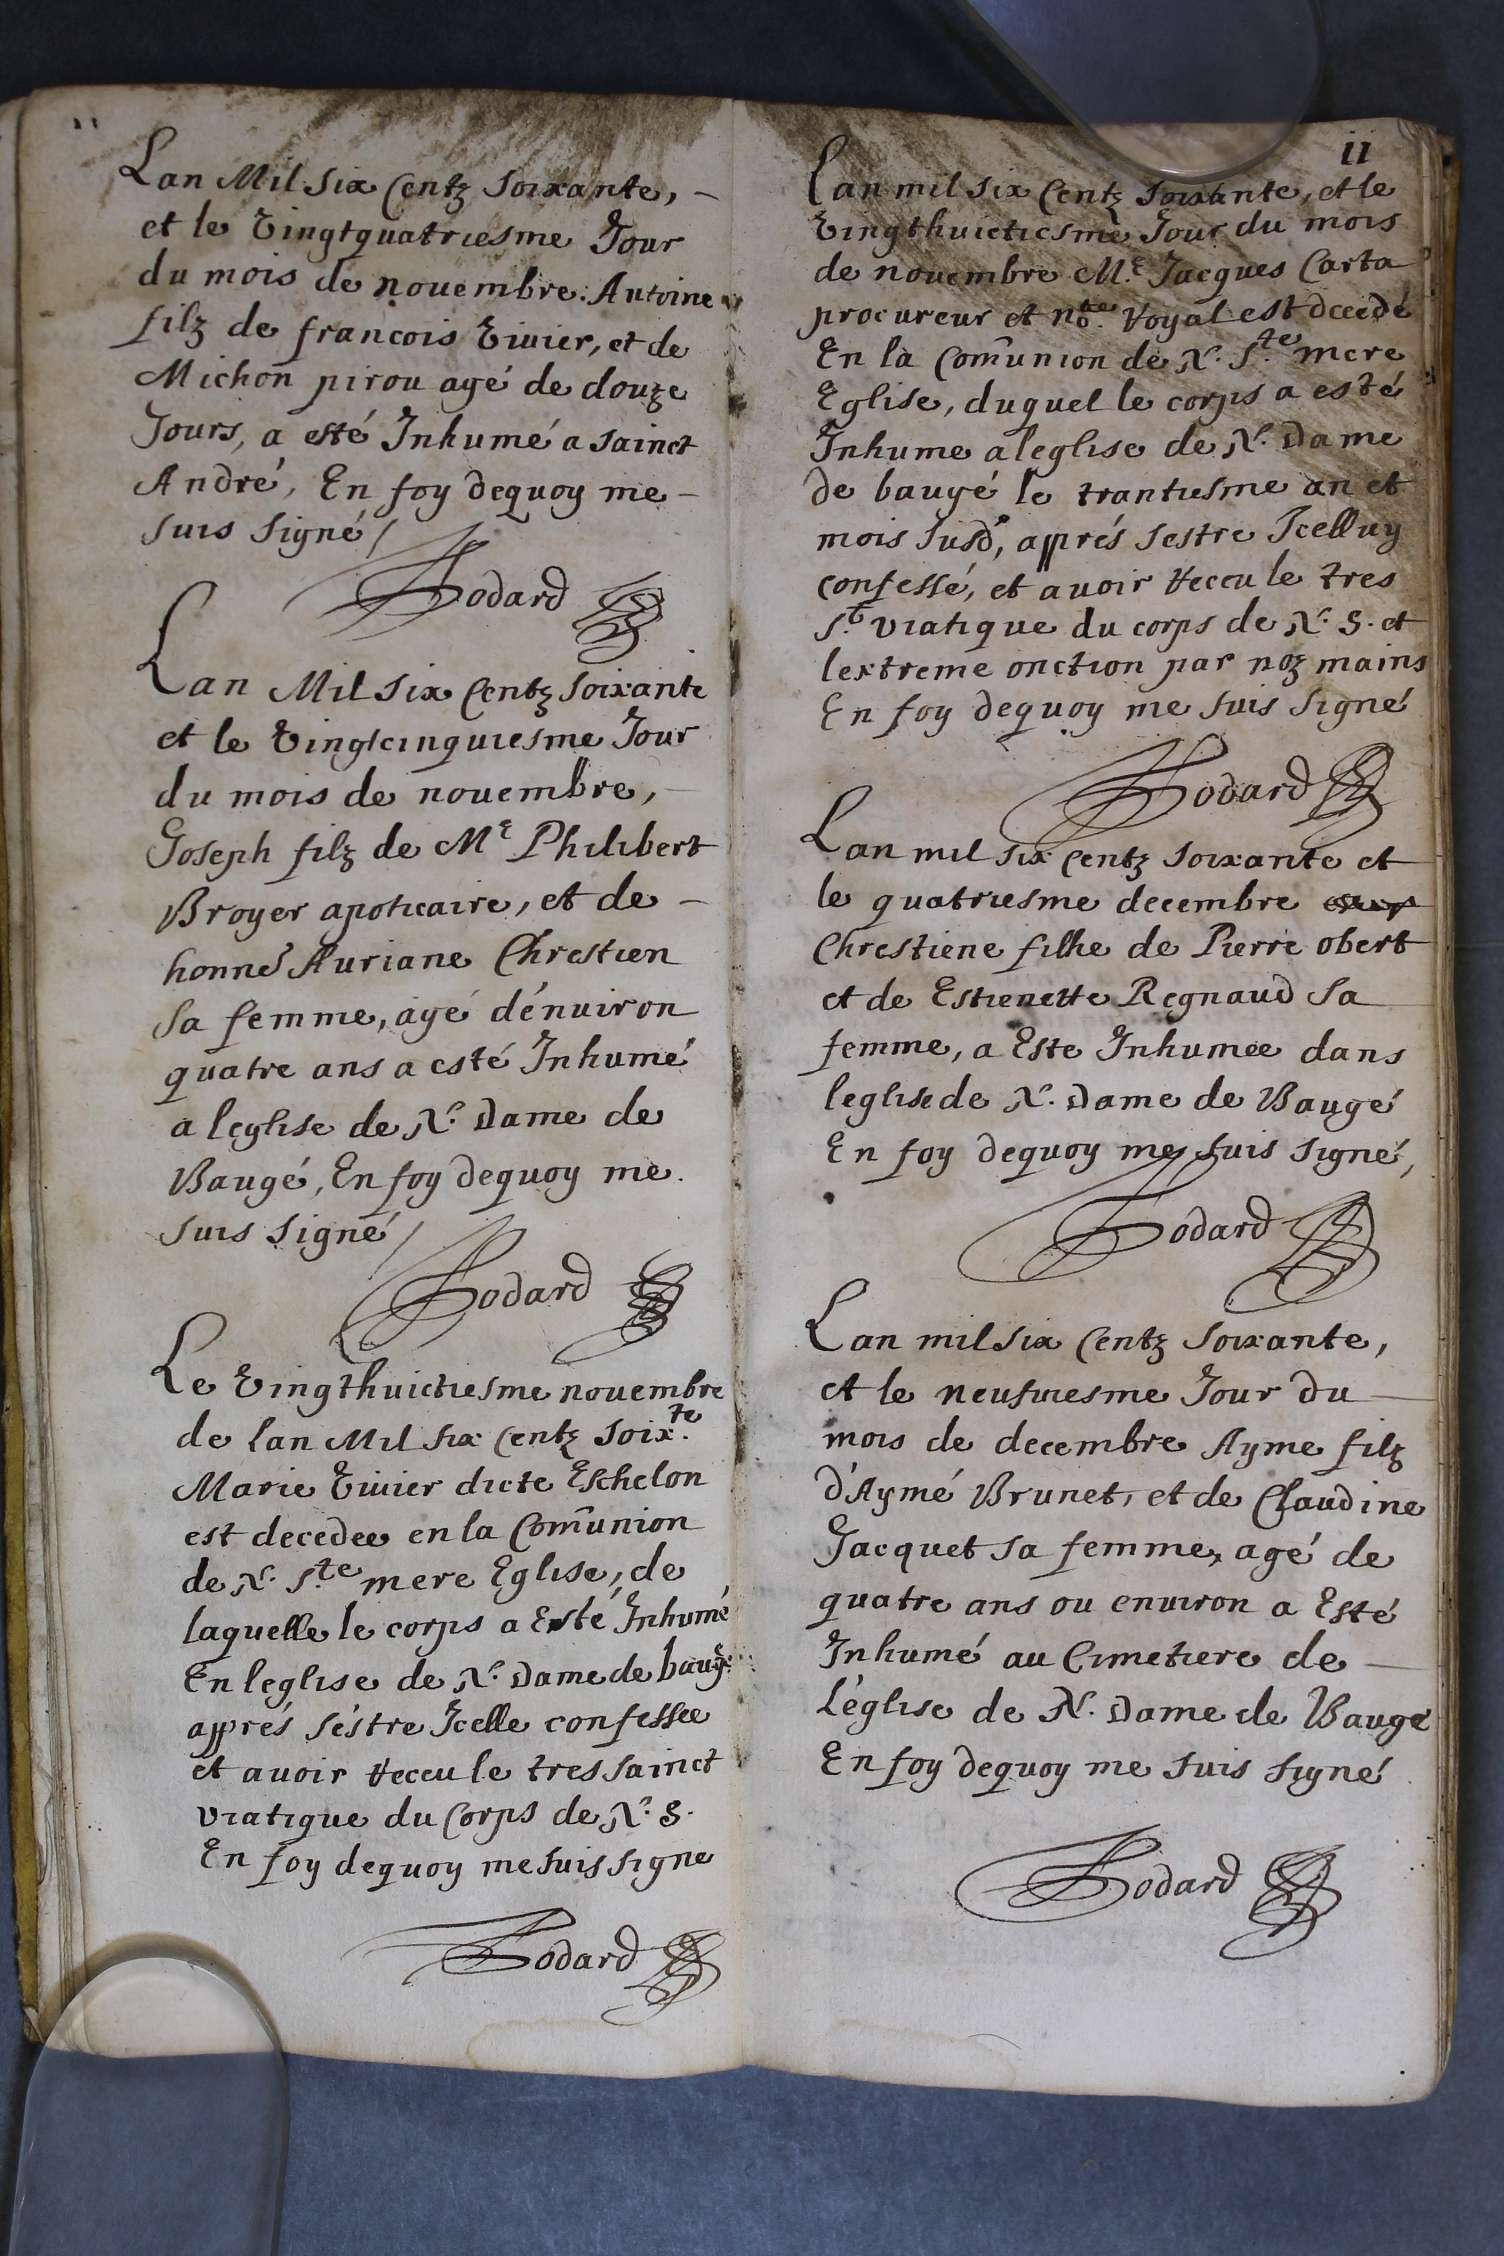 Lan Mil six Centz soixante, -
et le Vingtquatriesme Jour
du mois de nouembre. Antoine
filz de francois Viuier, et de
Michon pirou agé de douze
Jours, a esté Inhumé a sainct
André, En foy dequoy me -
suis signé /
Lan Mil six Centz soixante
et le Vingtcinquiesme Jour
du mois de nouembre, -
Joseph filz de Me Philibert
Broyer apoticaire, et de -
honne Auriane Chrestien
sa femme, agé d'enuiron
quatre ans a esté Inhumé
a leglise de N. Dame de
Baugé, En foy dequoy me
suis signé /
Le Vingthuictiesme nouembre
de lan Mil six Centz soix.te
Marie Viuier dicte Eschelon
est decedee en la Com̃union
de N. S.te mere Eglise, de
laquelle le corps a Esté Inhumé
En leglise de N. Dame de baugé
apprés s'éstre Jcelle confessee
et auoir receu le tres sainct
viatique du Corps de N. S.
En foy dequoy me suis signe
11
Lan mil six Centz soixante, et le
Vingthuictiesme Jour du mois
de nouembre Me. Jacques Carta
procureur et no.re royal est decedé
En la Com̃union de N. S.te mere
Eglise, duquel le corps a esté
Inhume a leglise de N. Dame
de baugé le trantiesme an et
mois susd, apprés sestre Jcelluy
confessé, et auoir receu le tres
S.t viatique du corps de N. S. et
lextreme onction par noz mains
En foy dequoy me suis signé
Lan mil six centz soixante et
le quatriesme decembre
Chrestiene filhe de Pierre obert
et de Estienette Regnaud sa
femme, a Este Inhumee dans
leglise de N. Dame de Baugé
En foy dequoy me suis signé,
Lan mil six Centz soixante,
et le neufuiesme Jour du -
mois de decembre Ayme filz
d'Aymé Brunet, et de Claudine
Jacquet sa femme, agé de
quatre ans ou enuiron a Esté
Inhumé au Cimetiere de -
L'église de N. Dame de Baugé
En foy dequoy me suis signé